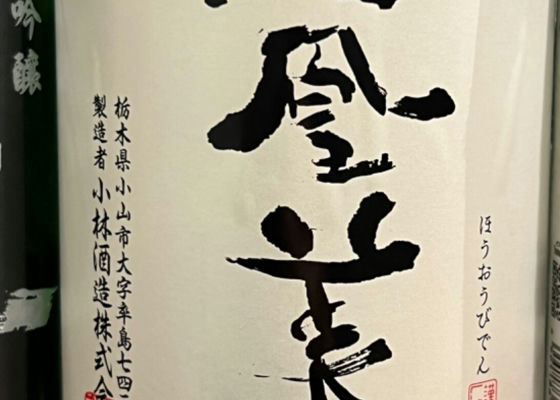 ほうおうびでん
凰美
栃木県小山市大字卒島七四二
製造者 小林酒造株式会
吟醸